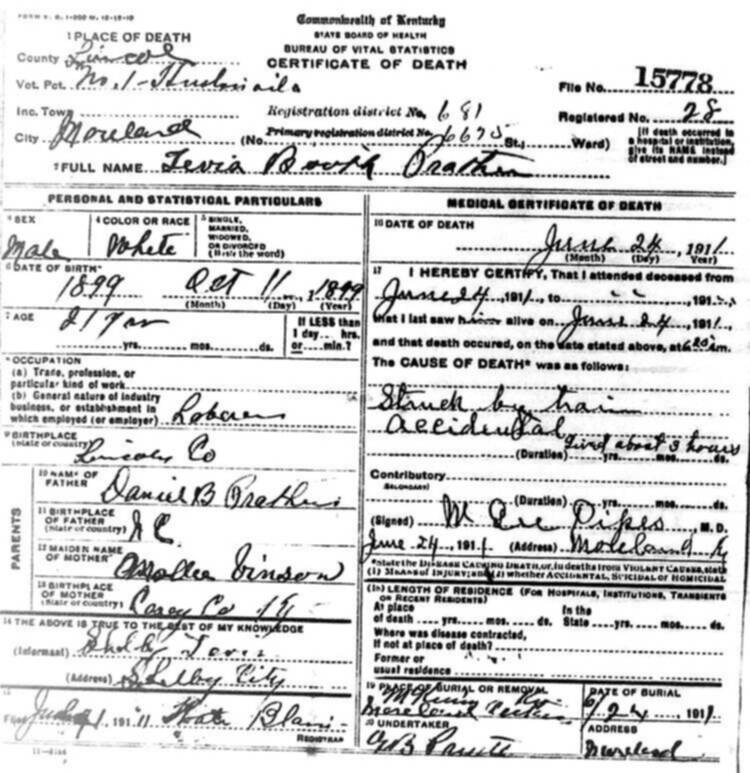 Commonwealth of Kentucky
STATE BOARD OF HEALTH
BUREAU OF VITAL STATISTICS
CERTIFICATE OF DEATH
1 PLACE OF DEATH
County Lincoln
Vot. Pct. No. 1
Inc. Town
City Moreland (No. St., Ward)
Registration district No. 681
Primary registration district No. 6675
File No. 15778
Registered No. 28
[If death occurred in
a hospital or institution,
give its NAME instead
of street and number.]
2 FULL NAME Prather
PERSONAL AND STATISTICAL PARTICULARS
3 SEX
Male
4 COLOR OR RACE
White
5 SINGLE,
MARRIED,
WIDOWED,
OR DIVORCED
(Write the word)
6 DATE OF BIRTH
1899 Oct 11, 1899
(Month) (Day) (Year)
7 AGE
21 yrs
yrs. mos. ds.
If LESS than
1 day hrs.
or min.?
8 OCCUPATION
(a) Trade, profession, or
particular kind of work
(b) General nature of industry
business, or establishment in
which employed (or employer) Laborer
9 BIRTHPLACE
(State or country) Lincoln Co
PARENTS
10 NAME OF
FATHER Daniel B Prather
11 BIRTHPLACE
OF FATHER
(State or country)
12 MAIDEN NAME
OF MOTHER Mollie Vinson
13 BIRTHPLACE
OF MOTHER
(State or country) Casey Co Ky
14 THE ABOVE IS TRUE TO THE BEST OF MY KNOWLEDGE
(Informant) Shelby
(Address) Shelby City
15
Filed 1911 Kate Blain
REGISTRAR
MEDICAL CERTIFICATE OF DEATH
16 DATE OF DEATH
June 24, 1911
(Month) (Day) (Year)
17 I HEREBY CERTIFY, That I attended deceased from
June 24, 1911, to , 191
that I last saw him alive on June 24, 1911
and that death occurred, on the date stated above, at 6 m.
The CAUSE OF DEATH* was as follows:
Struck by train
accidental
Lived about 3 hours
(Duration) yrs. mos. ds.
Contributory
SECONDARY
(Duration) yrs. mos. ds.
(Signed) M Pipes M. D.
June 24, 1911 (Address) Moreland Ky
*State the DISEASE CAUSING DEATH, or, in deaths from VIOLENT CAUSES, state
(1) MEANS OF INJURY; and (2) whether ACCIDENTAL, SUICIDAL or HOMICIDAL
18 LENGTH OF RESIDENCE (FOR HOSPITALS, INSTITUTIONS, TRANSIENTS
OR RECENT RESIDENTS)
At place
of death yrs. mos. ds.
In the
State yrs. mos. ds.
Where was disease contracted,
if not at place of death?
Former or
usual residence
19 PLACE OF BURIAL OR REMOVAL
Moreland
DATE OF BURIAL
6/24, 1911
20 UNDERTAKER
ADDRESS
Moreland